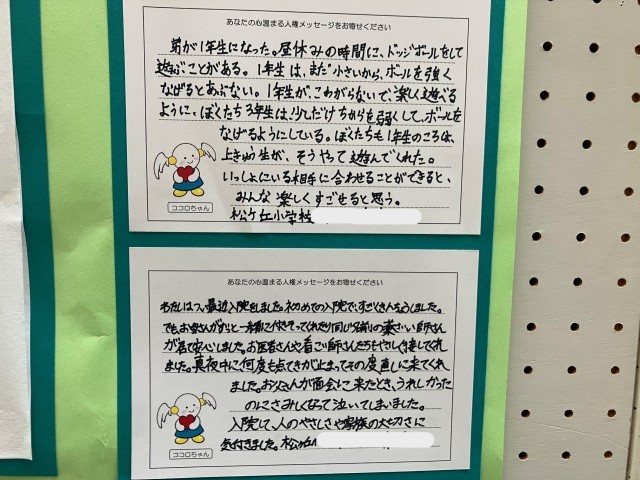 あなたの心温まる人権メッセージをお寄せください
弟が1年生になった。昼休みの時間に、ドッジボールをして
遊ぶことがある。1年生は、まだ小さいから、ボールを強く
なげるとあぶない。1年生が、こわがらないで、楽しく遊べる
ように、ぼくたち3年生は、少しだけちからを弱くして、ボールを
なげるようにしている。ぼくたちも1年生のころは、
上きゅう生が、そうやって遊んでくれた。
いっしょにいる相手に合わせることができると、
みんな楽しくすごせると思う。
松ケ丘小学校
ココロちゃん
あなたの心温まる人権メッセージをお寄せください
わたしはつい最近入院をしました。初めての入院で、すごくきんちょうしました。
でも、お母さんがずっと一緒につきそってくれたり同じ名前の薬ざい師さん
が居て安心しました。お医者さんや看ご師さんたちもやさしく接してくれ
ました。真夜中に何度も点てきが止まってその度直しに来てくれ
ました。お父さんが面会に来たとき、うれしかった
のにさみしくなって泣いてしまいました。
入院して、人のやさしさや家族の大切さに
気付きました。松ケ丘
ココロちゃん